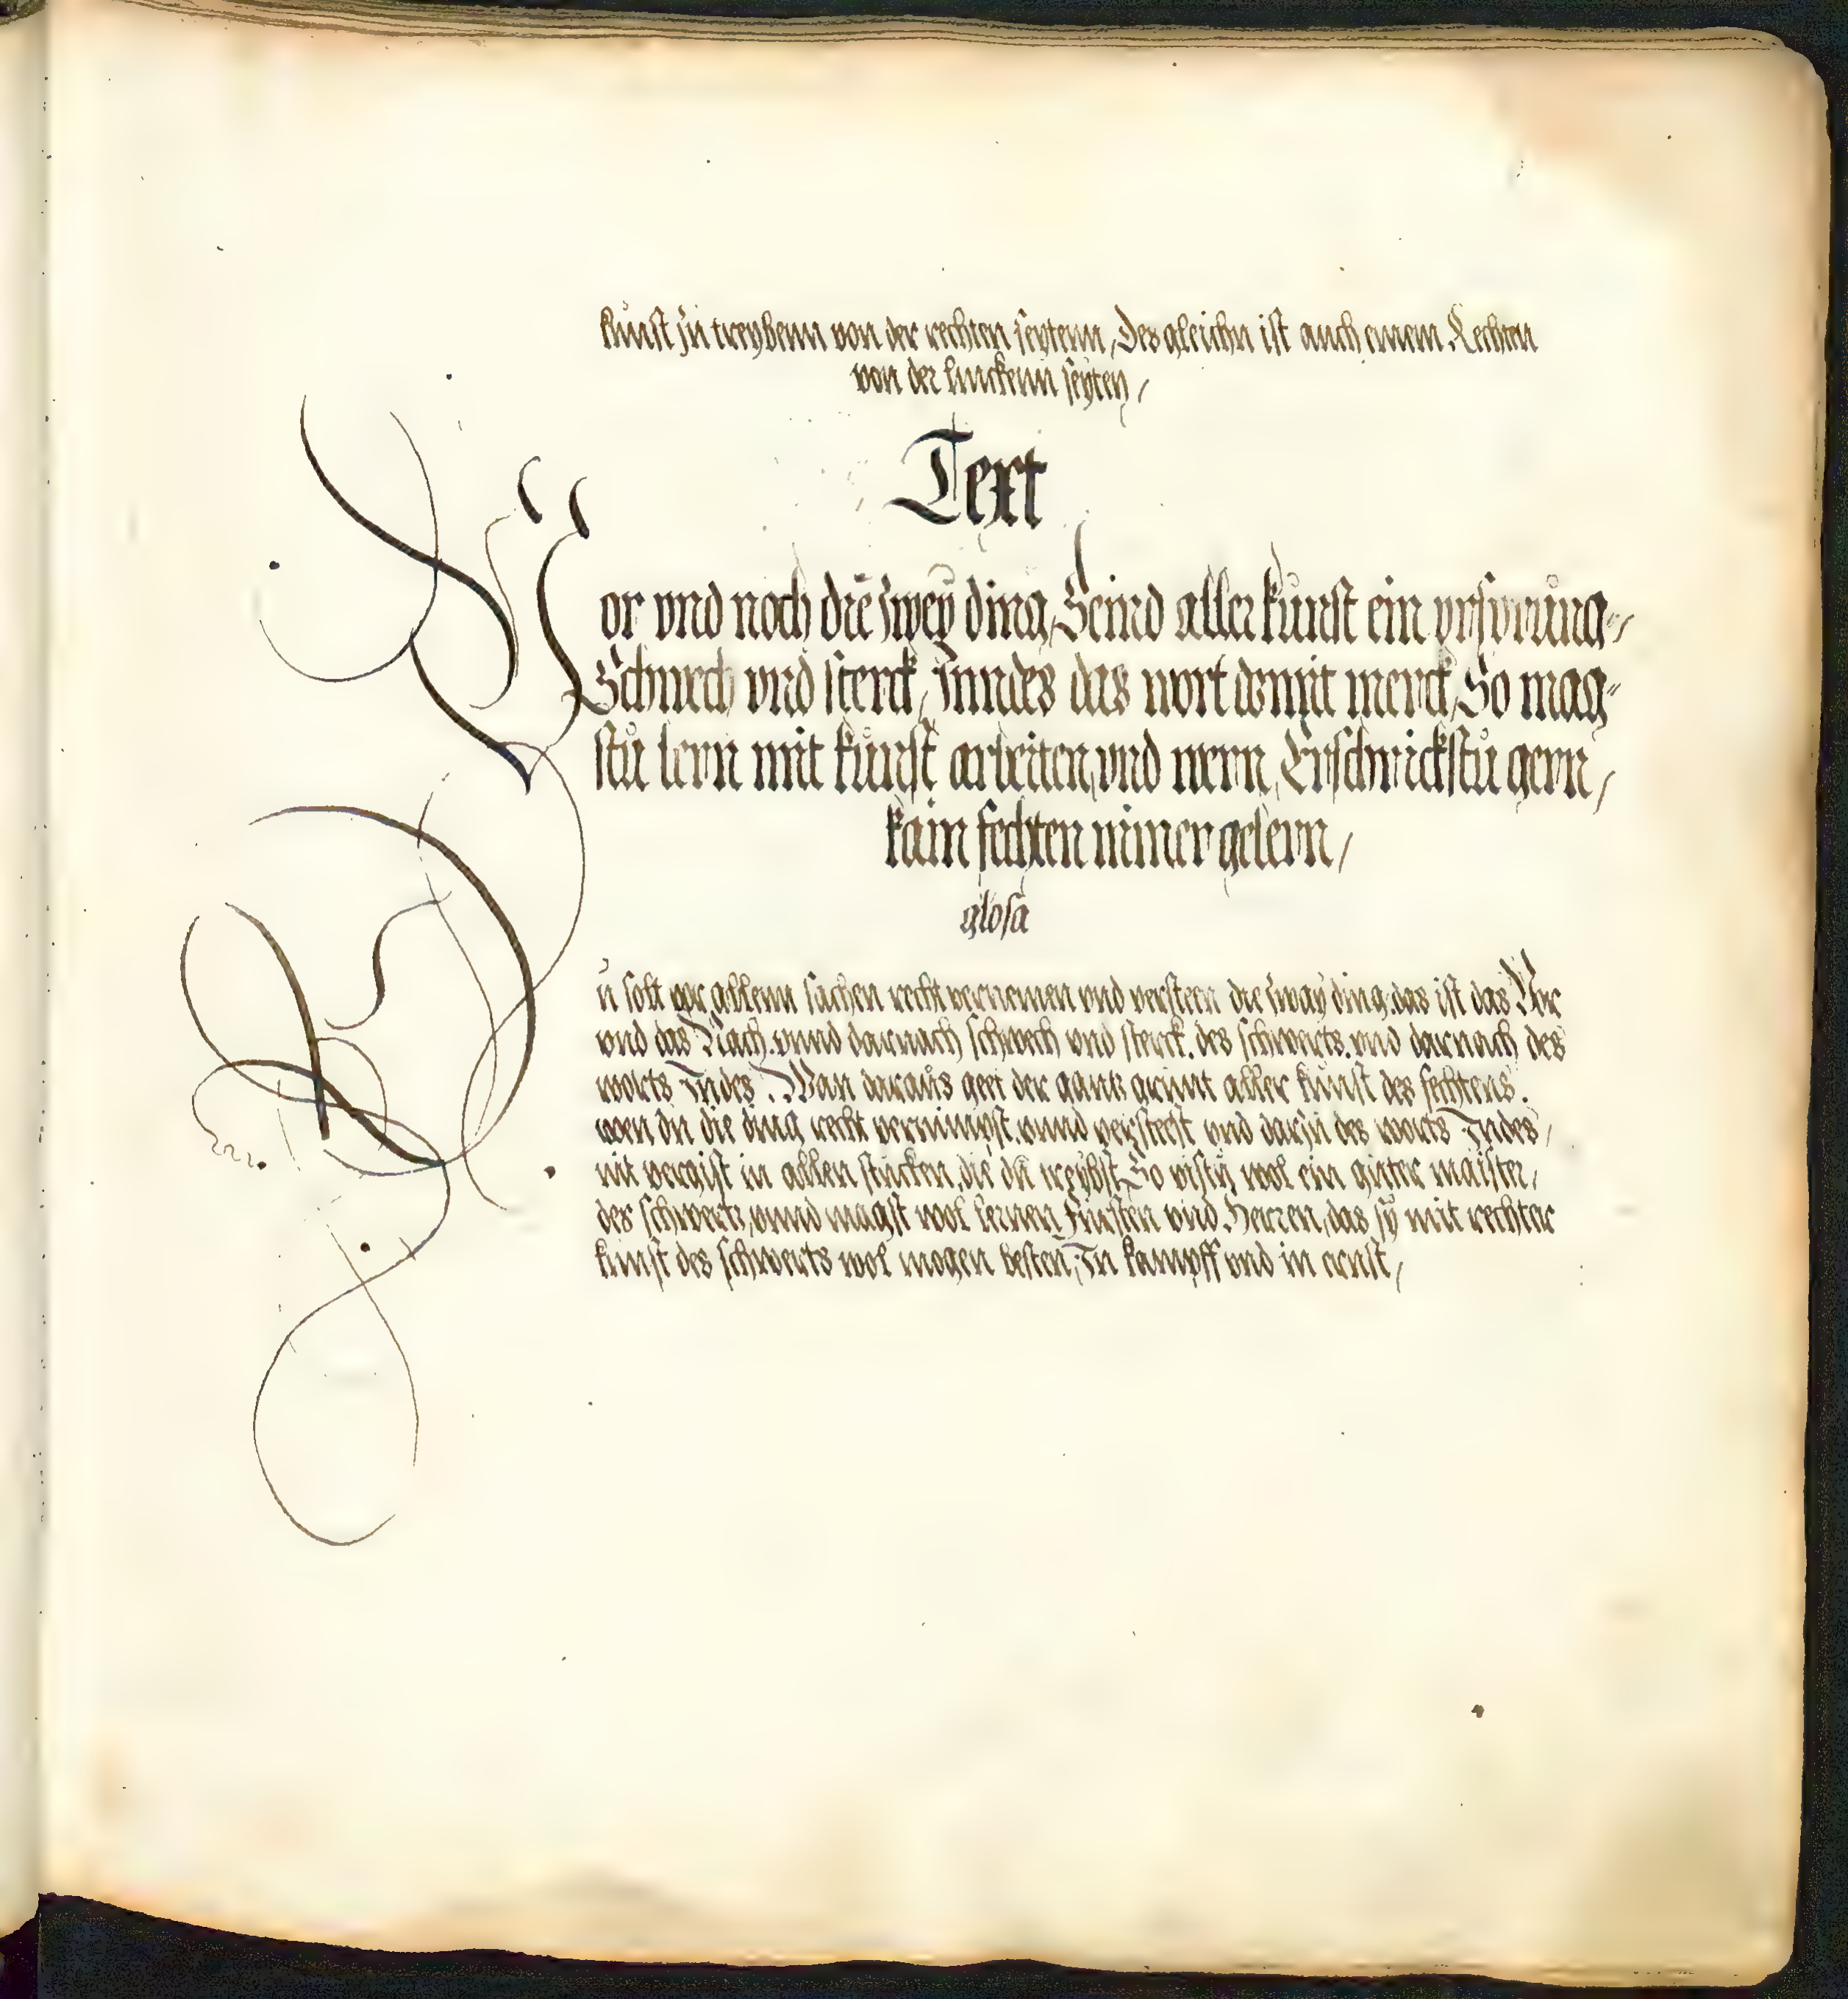 kunst zu treybenn von der rechten seytenn, Des gleichn ist auch einem Lechten
von der linckenn seyten /
Text
Vor vnd noch die zwey ding, Seind aller kunst ein vrsprung
Schwech vnd sterck, Inndes das wort domit merck, So mag
stu lern mit kunst arbeiten vnd wern, Erschrickstu gern /
kain fechten nimer gelern /
glosa
Du solt vor allenn sachen recht vernemen vnd versteen die zway ding. das ist das Vor
vnd das Nach. vnnd darnach schwech vnd sterck. des schwerts. vnd darnach des
worts Indes. Wan daraus geet der gantz grunt aller kunst des fechtens.
wen du die ding recht vernimpst. vnnd versteest vnd darzu des worts Indes /
nit vergist in allen stucken, die du treybst, So pistu wol ein guter maister,
des schwertz, vnnd magst wol lernen Fursten vnd Herren, das sy mit rechter
kunst des schwerts wol mogen besten, In kampff vnd in ernst /